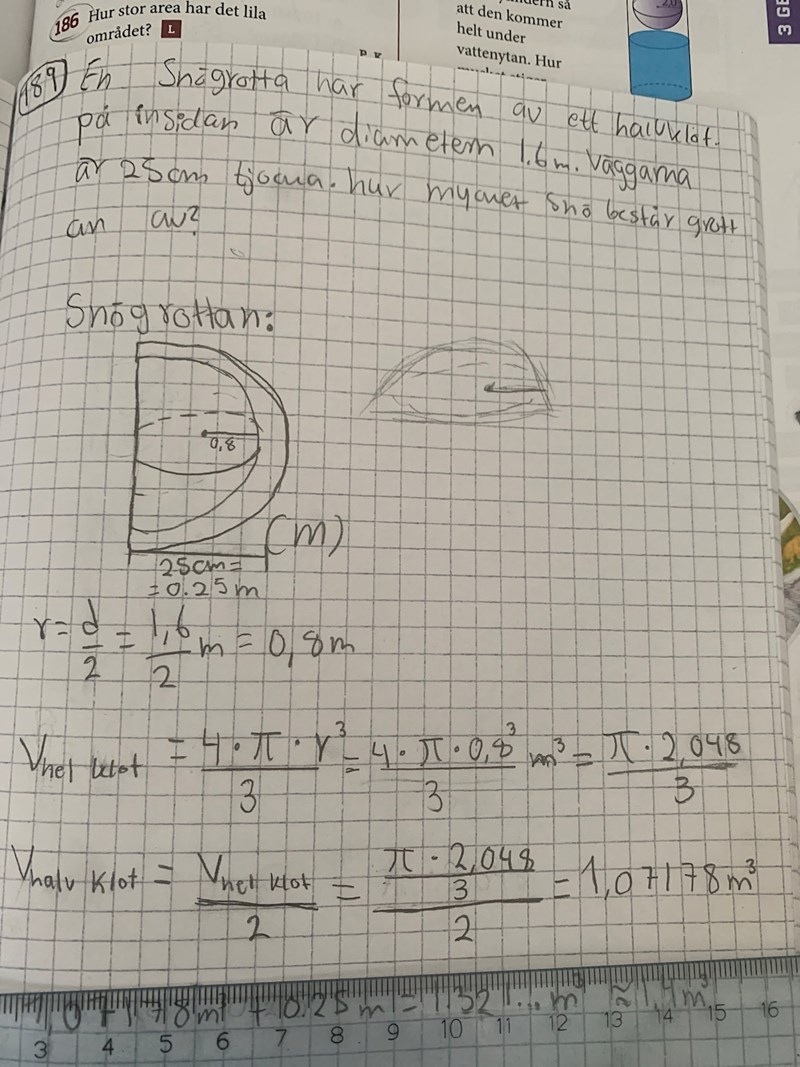 186 Hur stor area har det lila
området? L
så
att den kommer
helt under
vattenytan. Hur
3 GE
189 En Snögrotta har formen av ett halvklot.
på insidan är diametern 1.6 m. Väggarna
är 25cm tjocka. hur mycket snö består grott
an av?
Snögrottan:
0,8
(m)
25cm=
=0.25m
r = d/2 = 1,6/2 m = 0,8m
Vhel klot = 4·π·r³/3 = 4·π·0,8³/3 m³ = π·2,048/3
Vhalv klot = Vhel klot/2 = π·2,048/3/2 = 1,07178m³
1,07178m³ + 0.25m = 1.321... m³ ≈ 1,4m³
3 4 5 6 7 8 9 10 11 12 13 14 15 16